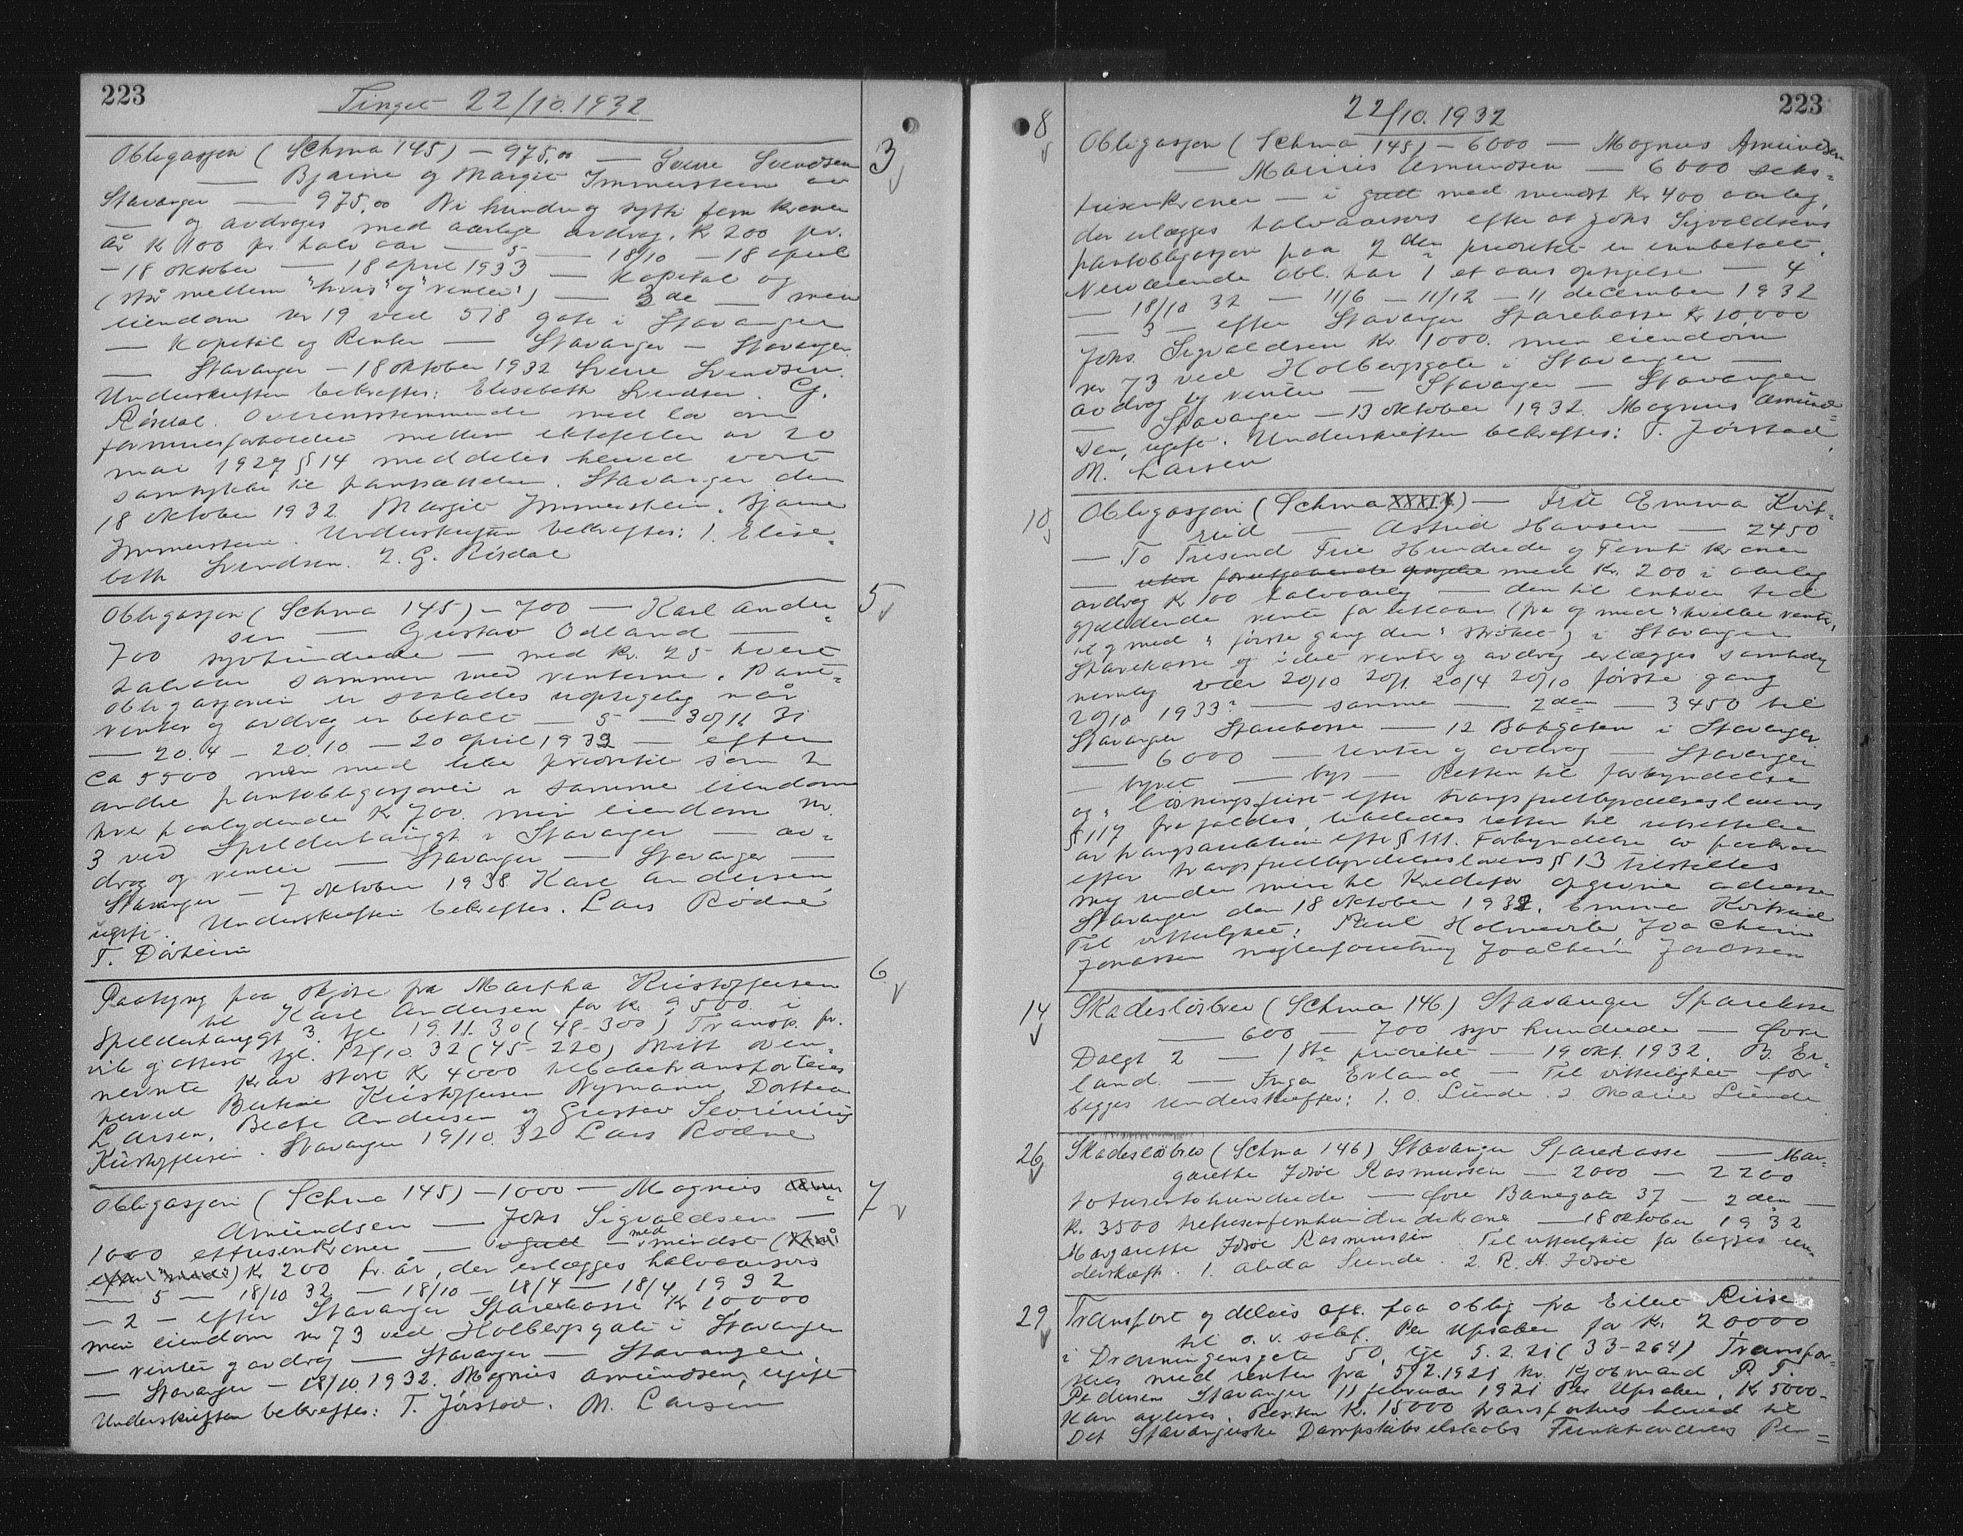 223
Tinget 22/10.1932
Obligasjon (Schma 145) - 975,00 — Sverre Svendsen
— Bjarne og Margit Immerstein av
Stavanger — 975,00 Ni hundre og sytti fem kroner
— og avdrages med aarlige avdrag, Kr 200 pr.
år Kr 100 pr. halv aar — 5 — 18/10 - 18 april
- 18 oktober — 18 april 1933 — Kapital og
(Strø mellem "hvis" og "renter") — 3de — min
eiendom nr 19 ved 578 gate i Stavanger
— Kapital og Renter — Stavanger — Stavanger
— Stavanger - 18 oktober 1932 Sverre Svendsen.
Underskriften bekreftes: Elisabeth Svendsen. G.
Risdal. Overensstemmende med lov om
formuesforholdet mellem ektefeller av 20
mai 1927 § 14 meddeles herved vort
samtykke til pantsættelsen. Stavanger den
18 oktober 1932 Margit Immerstein. Bjarne
Immerstein. Underskriften bekreftes: 1. Elisa=
beth Svendsen. 2. G. Risdal
3
Obligasjon (Schma 145) - 700 — Karl Ander=
sen — Gustav Odland —
700 syvhundrede — med kr. 25 hvert
halvaar sammen med renterne. Pant=
obligasjonen er saaledes uopsigelig når
renter og avdrag er betalt — 5 — 30/11 31
— 20.4 - 20.10 - 20 april 1932 — efter
Ca 5500 men med like prioritet som 2
andre pantobligasjoner i samme eiendom
hver paalydende Kr 700. min eiendom nr.
3 ved Spilderhauggt i Stavanger — av=
drag og renter — Stavanger — Stavanger —
Stavanger - 7 oktober 1938 Karl Andersen
ugift. Underskriften bekreftes. Lars Rødne
T. Dørheim
5
Paategng paa skjøte fra Martha Kristoffersen
til Karl Andersen for kr 9500. i
Spilderhauggt 3. tgl 19.11.30 (48-300) Transp. pr.
vik g attest tgl. 12/10 32 (45-220) Mitt oven=
nevnte krav stort Kr 4000 tilbaketransporteres
herved Berthe Kristoffersen Nymann, Dorthea
Larsen, Beate Andersen og Gustav Severining
Kristoffersen. Stavanger 19/10.32 Lars Rødne
6
Obligasjon (Schma 145) - 1000 — Magnus
Amundsen — Johs Sigvaldsen —
1000 ettusenkroner — i gull — med mindst
Kr 200 pr. år, der erlægges halvaarsvis
— 5 — 18/10 32 — 18/10 - 18/4 — 18/4 1932
— 2 — efter Stavanger Sparekasse Kr 10,000
min eiendom nr 73 ved Holbergsgate i Stavanger
— renter g avdrag — Stavanger — Stavanger.
— Stavanger - 18/10.1932. Magnus Amundsen, ugift
Underskriften bekreftes: T. Jørstad. M. Larsen
7
22/10.1932
223
8
Obligasjon (Schma 145) - 6000 — Magnus Amundsen
— Marius Amundsen — 6000 seks=
tusenkroner — i gull med mindst Kr 400 aarlig,
der erlægges halvaarsvis efter at Johs Sigvaldsens
pantobligasjon paa 2den prioritet er innbetalt.
Nerværende obl. har 1 et aars opsigelse — 4
— 18/10 32 — 11/6 — 11/12 - 11 december 1932
— 3 — efter Stavanger Sparekasse Kr 10000
Johs. Sigvaldsen Kr. 1000. min eiendom
nr 73 ved Holbergsgate i Stavanger —
avdrag og renter — Stavanger — Stavanger
— Stavanger - 13 oktober 1932. Magnus Amund=
sen, ugift. Underskriften bekreftes: T. Jørstad,
M. Larsen
10
Obligasjon (Schma XXXIX) — Frk Emma Kvit=
rud — Astrid Hansen — 2450
— To Tusend Fire Hundrede og Femti kroner
— uten forutgaaende opsigelse med Kr. 200 i aarlig
avdrag Kr 100 halvaarlig — den til enhver tid
gjældende rente for utlaan (fra og med "hvilke renter"
til og med "første gang den" strøket) i Stavanger
Sparekasse og idet renter og avdrag erlægges samtidig
nemlig hver 20/10 20/1 20/4 20/10 første gang
20/10 1933. — samme — 2den — 3450 til
Stavanger Sparekasse — 12 Bakgaten i Stavanger
— 6000 — renter g avdrag — Stavanger
— bynet — by — Retten til forbyndelse
og løsningsfrist efter tvangsfuldbyrdelseslovens
§ 117 frafaldes, likeledes retten til utsettelse
av tvangsauktion efter § 111. Forkyndelse av
efter tvangsfuldbyrdelseslovens § 13 tilstilles
mig under min til kreditor opgivne adresse
Stavanger den 18 oktober 1932. Emma Kvitrud
Til vitterlighet: Paul Holmevik Joachim
Jonassen meglerforretning Joachim Jonassen
14
Skadesløsbrev (Schma 146) Stavanger Sparekasse
— 600 — 700 syv hundrede — Øvre
Dalgt 2 — 1ste prioritet — 19 okt. 1932. B. Er=
land — Inga Erland — Til vitterlighet for
begges underskrifter: 1. O. Lunde. 2 Marie Lunde
26
Skadesløsbrev (Schma 146) Stavanger Sparekasse — Mar=
garethe Josve Rasmussen — 2000 — 2200
totusentohundrede — Øvre Banegate 37 — 2den —
Kr. 3500 tretusenfemhundredekrone — 18 oktober 1932
Margarethe Josve Rasmussen Til vitterlighet for begges un=
derskrift. 1. Alida Lunde. 2. R. A. Josve
29
Transport g delvis avl. paa oblig fra Eilert Riise
til o.r. sakf. Per Upsaker for Kr. 20000
i Dronningensgate 50, tgl 5.2.21 (33-264) Transpor=
teres med renter fra 5/2.1921 hr. kjøbmand P. T.
Pedersen Stavanger 11 februar 1921 Per Upsaker. Kr 5000-
kan avleses. Resten Kr. 15000 transporteres herved til
Det Stavangerske Dampskibsselskabs Funktionærers Pen=